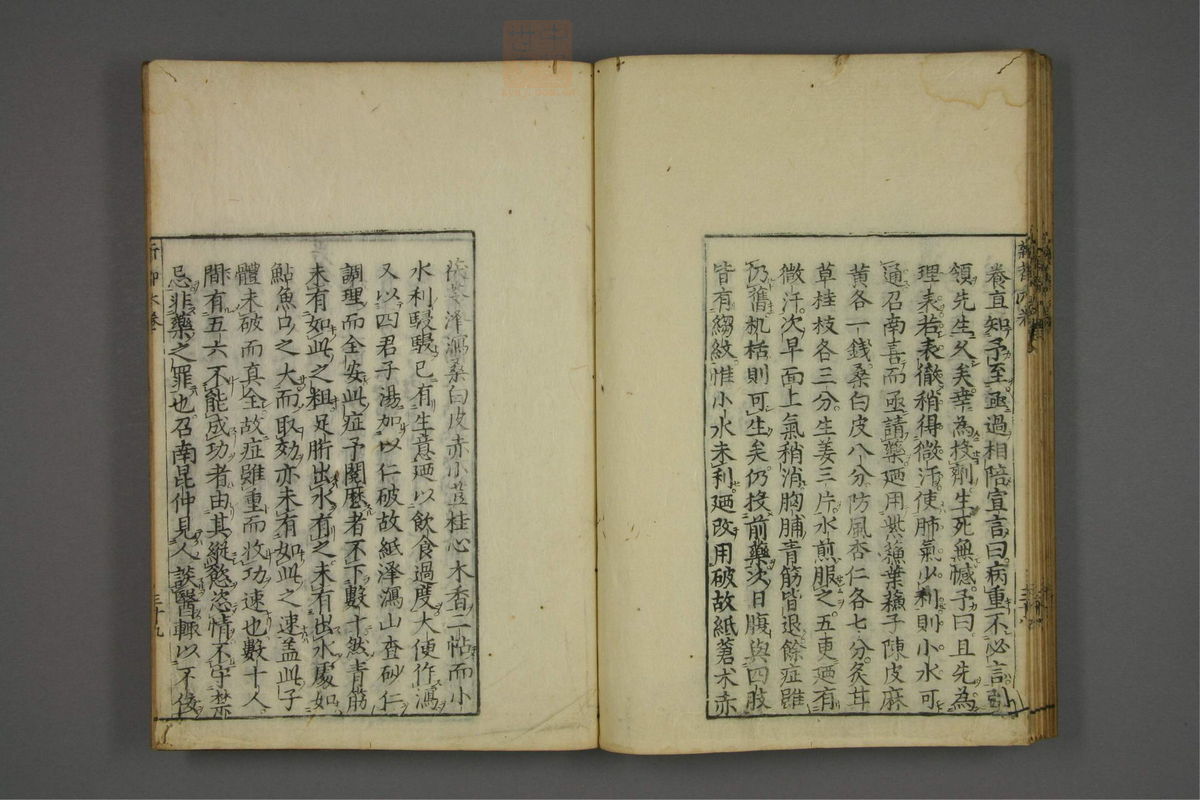 養直知予至亟過相陪宣言曰病重不必言引
領先生久矣幸為投劑生死無憾予曰且先為
理表若表徹稍得微汗使肺氣少利則小水可
通召南喜而亟請藥廼用紫蘓葉蘓子陳皮麻
黄各一錢桑白皮八分防風杏仁各七分炙甘
草桂枝各三分生姜三片水煎服之五更廼有
微汗次早面上氣稍消胸脯青筋皆退餘症雖
仍舊机栝則可生矣仍投前藥次日腹與四肢
皆有縐紋惟小水未利廼改用破故紙蒼术赤
茯苓澤瀉桑白皮赤小荳桂心木香二帖而小
水利駸駸已有生意廼以飲食過度大便作瀉
又以四君子湯加以仁破故紙澤瀉山查砂仁
調理而全安此症予閱歷者不下數十然青筋
未有如此之粗足䏡出水有之未有出水處如
鮎魚口之大而取効亦未有如此之速盖此子
體未破而真全故症雖重而收功速也數十人
間有五六不能成功者由其縱慾恣情不守禁
忌非藥之罪也召南昆仲見人談醫輒以不佞
三十九